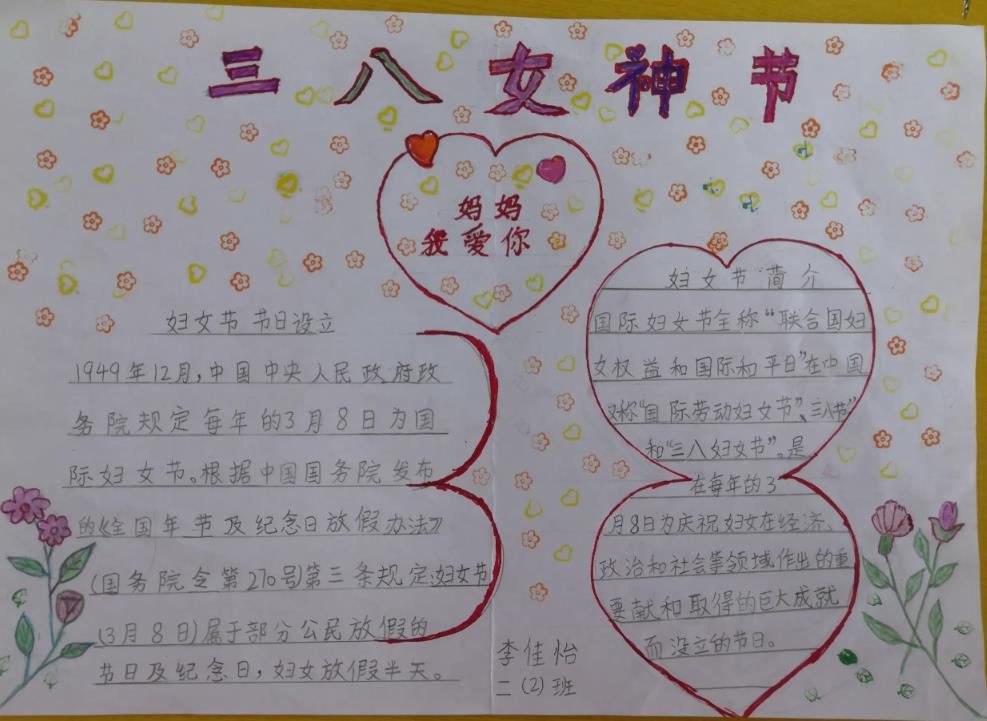 三八女神节
妈妈
我爱你
妇女节节日设立
1949年12月,中国中央人民政府政
务院规定每年的3月8日为国
际妇女节。根据中国国务院发布
的《全国年节及纪念日放假办法》
(国务院令第270号)第三条规定,妇女节
(3月8日)属于部分公民放假的
节日及纪念日,妇女放假半天。
妇女节简介
国际妇女节全称“联合国妇
女权益和国际和平日”在中国
又称“国际劳动妇女节”、三八节”
和“三八妇女节”。是
在每年的3
月8日为庆祝妇女在经济、
政治和社会等领域作出的重
要献和取得的巨大成就
而设立的节日。
李佳怡
二(2)班